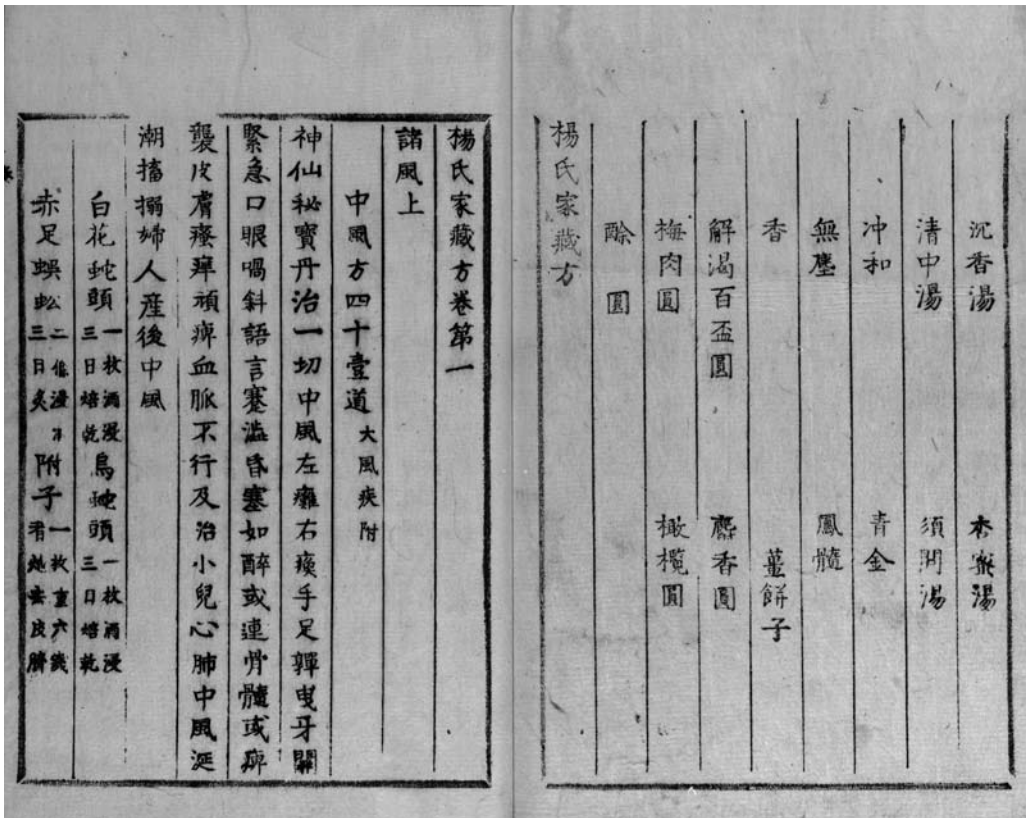 沉香湯 杏蜜湯
清中湯 須問湯
冲和 青金
無塵 鳳髓
香 薑餅子
解渴百盃圓 麝香圓
梅肉圓 橄欖圓
酴 圓
楊氏家藏方
楊氏家藏方卷第一
諸風上
中風方四十壹道 大風疾附
神仙秘寶丹治一切中風左癱右瘓手足嚲曳牙關
緊急口眼喎斜語言蹇澁昏塞如醉或連骨髓或痹
襲皮膚瘙痒頑痹血脈不行及治小兒心肺中風涎
潮搐搦婦人產後中風
白花蛇頭 一枚酒浸三日焙乾 烏蛇頭 一枚酒浸三日焙乾
赤足蜈蚣 二條浸三日炙 附子 一枚重六錢者炮去皮臍